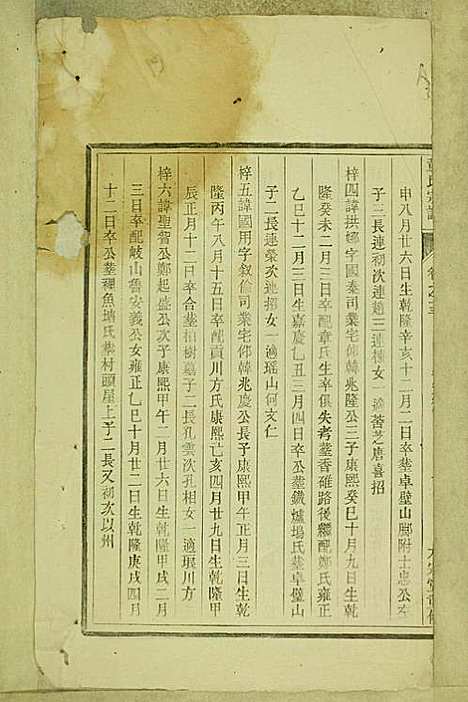 申八月廿六日生乾隆辛亥十二月二日卒塟卓壁山脚附士忠公左
子三長連初次連趙三連棟女一適莟芝唐喜招
梓四諱拱鄉字國泰司業宅仰韓兆隆公三子康熙癸巳十月九日生乾
隆癸未二月三日卒配章氏生卒俱失考塟香碓路後繼配鄭氏雍正
乙巳十二月三日生嘉慶乙丑三月四日卒公塟鐵爐塢氏塟卓壁山
子二長連榮次連招女一適瑶山何支仁
梓五諱國用字叙倫司業宅仰韓兆慶公長子康熙甲午正月三日生乾
隆丙午八月十五日卒配貢川方氏康熙己亥四月廿九日生乾隆甲
辰正月十二日卒合塟栢樹嘉子二長孔雲次孔相女一適琅川方
梓六諱聖智公鄭起盛公次子康熙甲午二月廿六日生乾隆甲戌二月
三日卒配岐山魯安義公女雍正乙巳十月廿二日生乾隆庚戌四月
十二日卒公塟裡魚塘氏塟村頭屋上子二長又初次以州